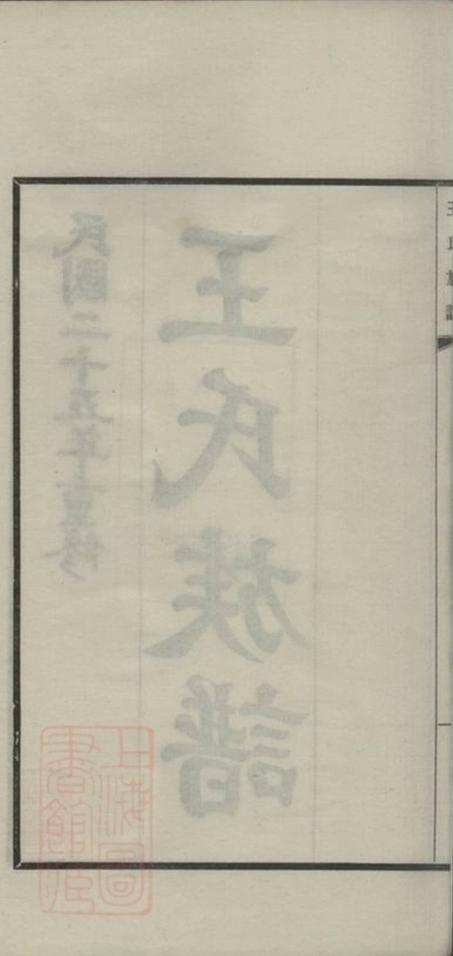 王氏族譜
王氏族譜
民國二十五年重修
上海圖
書館藏